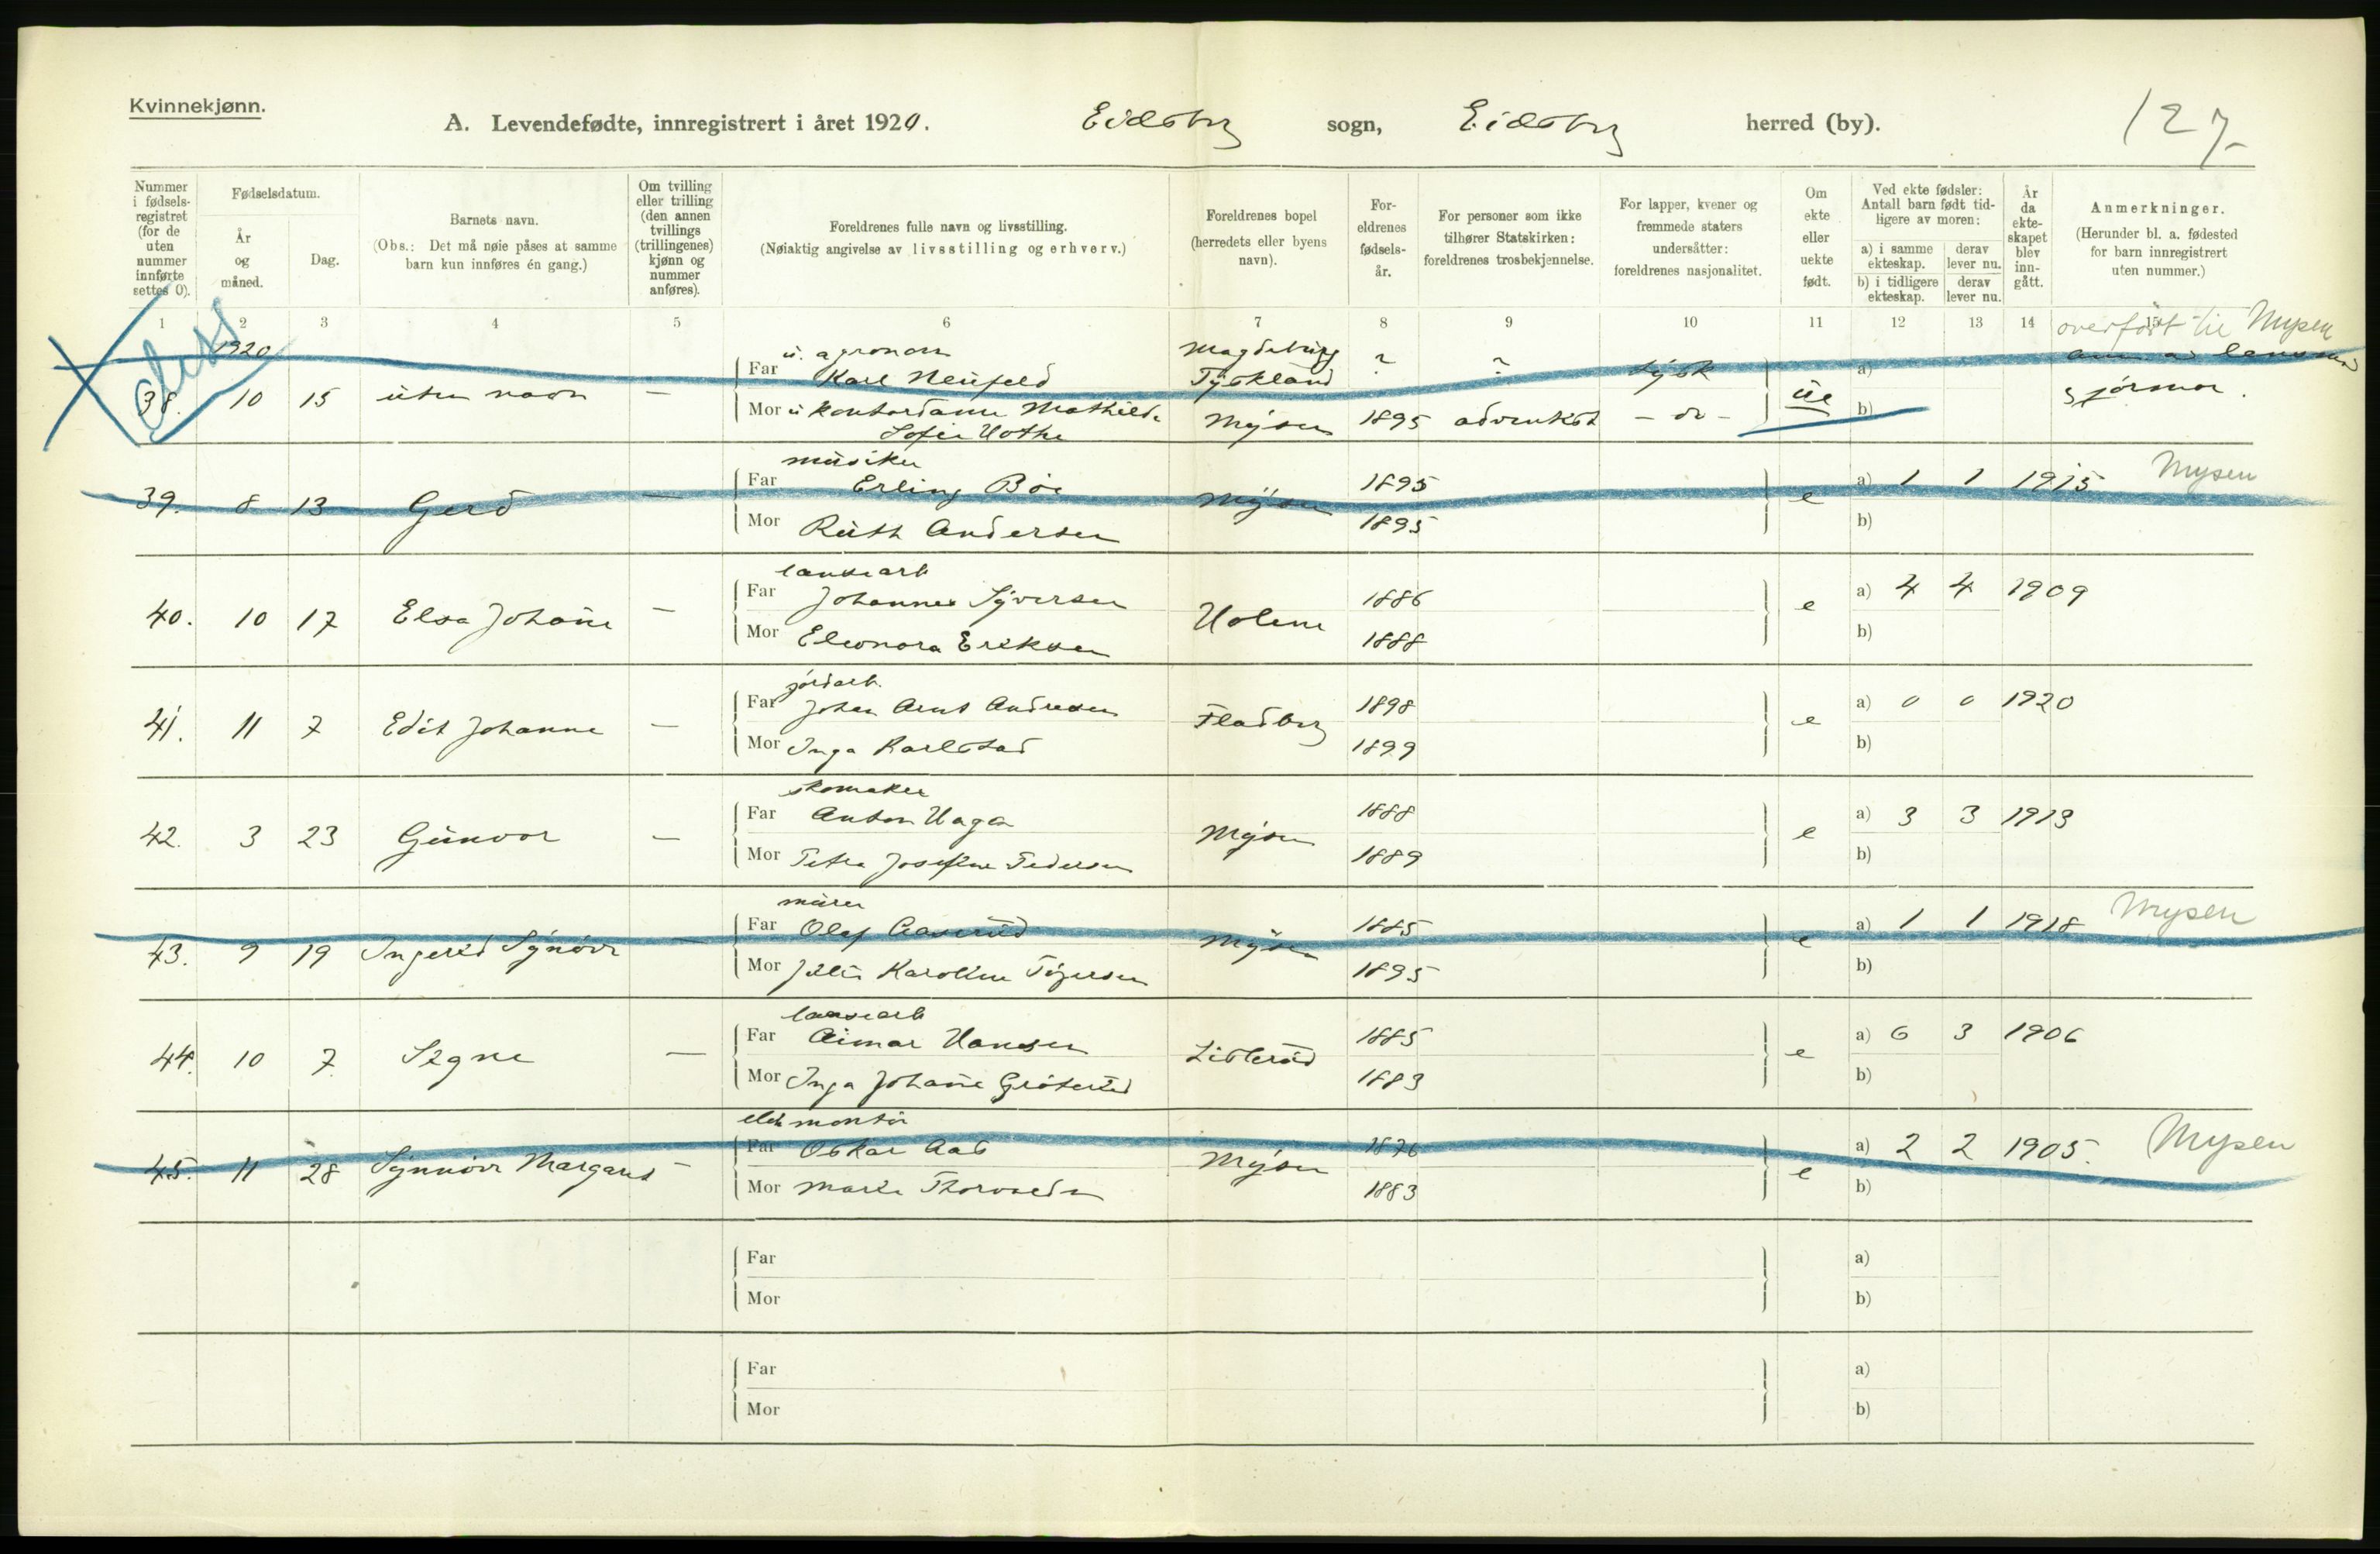 Kvinnekjønn.
A. Levendefødte, innregistrert i året 1920. Eidsberg sogn, Eidsberg herred (by). 127
Nummer i fødselsregistret (for de uten nummer innførte settes 0).
Fødselsdatum.
År og måned.
Dag.
Barnets navn.
(Obs.: Det må nøie påses at samme barn kun innføres én gang.)
Om tvilling eller trilling (den annen tvillings (trillingenes) kjønn og nummer anføres).
Foreldrenes fulle navn og livsstilling.
(Nøiaktig angivelse av livsstilling og erhverv.)
Foreldrenes bopel (herredets eller byens navn).
Foreldrenes fødselsår.
For personer som ikke tilhører Statskirken: foreldrenes trosbekjennelse.
For lapper, kvener og fremmede staters undersåtter: foreldrenes nasjonalitet.
Om ekte eller uekte født.
Ved ekte fødsler: Antall barn født tidligere av moren:
a) i samme ekteskap. derav lever nu.
b) i tidligere ekteskap. derav lever nu.
År da ekteskapet blev inngått.
Anmerkninger.
(Herunder bl. a. fødested for barn innregistrert uten nummer.)
1 2 3 4 5 6 7 8 9 10 11 12 13 14 15
overført til Mysen
1920
u. agronom Magdeburg
Far Karl Neufeld Tyskland ? ? tysk a)
38. 10 15 uten navn — ue
Mor u kontordame Mathilde Mysen 1895 adventist - do - b) jormor.
Sofie Hothe
musiker
Far Erling Boe 1895 a) 1 1 1915 Mysen
39. 8 13 Gerd — Mysen e
Mor Ruth Andersen 1895 b)
landearb
Far Johannes Syversen 1886 a) 4 4 1909
40. 10 17 Elsa Johane — Holene e
Mor Eleonora Eriksen 1888 b)
jordarb.
Far Johan Arnt Andresen 1898 a) 0 0 1920
41. 11 7 Edit Johanne — Fladberg e
Mor Inga Karlstad 1899 b)
skomaker
Far Anton Haga 1888 a) 3 3 1913
42. 3 23 Gunvor — Mysen e
Mor Petra Josefine Pedersen 1889 b)
murer
Far Olaf Aaserud 1885 a) 1 1 1918 Mysen
43. 9 19 Ingerid Synøve — Mysen e
Mor Julie Karoline 1895 b)
landearb
Far Aimar Hansen 1885 a) 6 3 1906
44. 10 7 Signe — e
Mor Inga Johane 1883 b)
elek montør
Far Oskar Aas 1876 a) 2 2 1905. Mysen
45. 11 28 Synnøve Margaret — Mysen e
Mor Marie 1883 b)
Far a)
Mor b)
Far a)
Mor b)